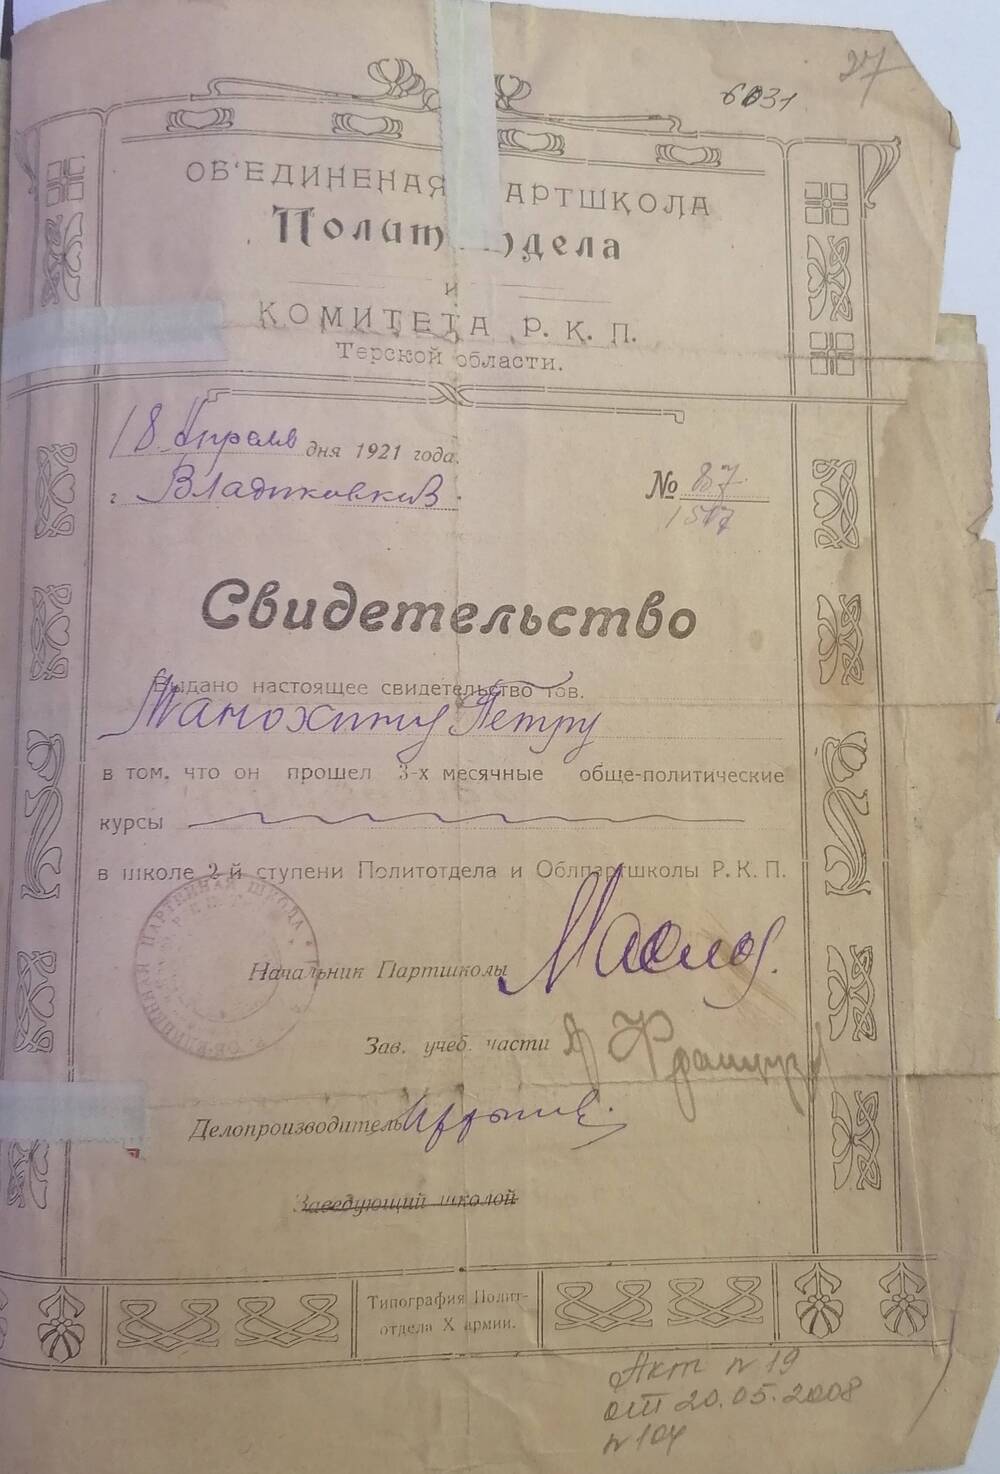 27
6031
ОБ'ЕДИНЕНАЯ АРТШКОЛА
Полит одела
и
КОМИТЕТА Р. К. П.
Терской области.
18 Апреля дня 1921 года.
г Владикавказ.
№ 87
1517
Свидетельство
Выдано настоящее свидетельство тов.
Манохину Петру
в том, что он прошел 3-х месячные обще-политические
курсы
в школе 2-й ступени Политотдела и Облпартшколы Р. К. П.
ОБ-ЕДИНЕННАЯ ПАРТИЙНАЯ ШКОЛА
Начальник Партшколы
Зав. учеб. части
Делопроизводитель
Заведующий школой
Типография Полит-
отдела X армии.
Акт № 19
от 20.05.2008
№ 104